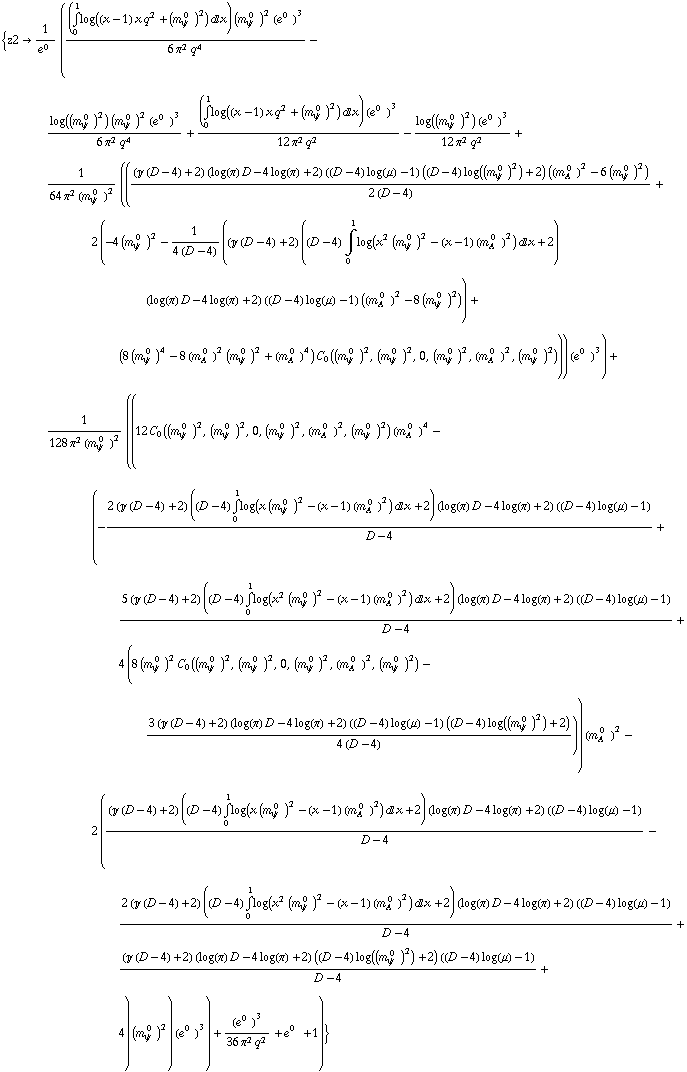 {z2 → 1/e^0 (((∫_0^1 log((x−1) x q^2 + (m_ψ^0)^2) ⅆx) (m_ψ^0)^2 (e^0)^3)/(6 π^2 q^4) −
(log((m_ψ^0)^2) (m_ψ^0)^2 (e^0)^3)/(6 π^2 q^4) + ((∫_0^1 log((x−1) x q^2 + (m_ψ^0)^2) ⅆx) (e^0)^3)/(12 π^2 q^2) − (log((m_ψ^0)^2) (e^0)^3)/(12 π^2 q^2) +
1/(64 π^2 (m_ψ^0)^2) ((((γ (D−4)+2) (log(π) D−4 log(π)+2) ((D−4) log(μ)−1) ((D−4) log((m_ψ^0)^2)+2) ((m_A^0)^2 −6 (m_ψ^0)^2))/(2 (D−4)) +
2 (−4 (m_ψ^0)^2 − 1/(4 (D−4)) ((γ (D−4)+2) ((D−4) ∫_0^1 log(x^2 (m_ψ^0)^2 −(x−1) (m_A^0)^2) ⅆx+2)
(log(π) D−4 log(π)+2) ((D−4) log(μ)−1) ((m_A^0)^2 −8 (m_ψ^0)^2)) +
(8 (m_ψ^0)^4 −8 (m_A^0)^2 (m_ψ^0)^2 +(m_A^0)^4) C_0((m_ψ^0)^2, (m_ψ^0)^2, 0, (m_ψ^0)^2, (m_A^0)^2, (m_ψ^0)^2))) (e^0)^3) +
1/(128 π^2 (m_ψ^0)^2) ((12 C_0((m_ψ^0)^2, (m_ψ^0)^2, 0, (m_ψ^0)^2, (m_A^0)^2, (m_ψ^0)^2) (m_A^0)^4 −
(−(2 (γ (D−4)+2) ((D−4) ∫_0^1 log(x (m_ψ^0)^2 −(x−1) (m_A^0)^2) ⅆx+2) (log(π) D−4 log(π)+2) ((D−4) log(μ)−1))/(D−4) +
(5 (γ (D−4)+2) ((D−4) ∫_0^1 log(x^2 (m_ψ^0)^2 −(x−1) (m_A^0)^2) ⅆx+2) (log(π) D−4 log(π)+2) ((D−4) log(μ)−1))/(D−4) +
4 (8 (m_ψ^0)^2 C_0((m_ψ^0)^2, (m_ψ^0)^2, 0, (m_ψ^0)^2, (m_A^0)^2, (m_ψ^0)^2) −
(3 (γ (D−4)+2) (log(π) D−4 log(π)+2) ((D−4) log(μ)−1) ((D−4) log((m_ψ^0)^2)+2))/(4 (D−4)))) (m_A^0)^2 −
2 (((γ (D−4)+2) ((D−4) ∫_0^1 log(x (m_ψ^0)^2 −(x−1) (m_A^0)^2) ⅆx+2) (log(π) D−4 log(π)+2) ((D−4) log(μ)−1))/(D−4) −
(2 (γ (D−4)+2) ((D−4) ∫_0^1 log(x^2 (m_ψ^0)^2 −(x−1) (m_A^0)^2) ⅆx+2) (log(π) D−4 log(π)+2) ((D−4) log(μ)−1))/(D−4) +
((γ (D−4)+2) (log(π) D−4 log(π)+2) ((D−4) log((m_ψ^0)^2)+2) ((D−4) log(μ)−1))/(D−4) +
4) (m_ψ^0)^2) (e^0)^3) + (e^0)^3/(36 π^2 q^2) + e^0 +1)}